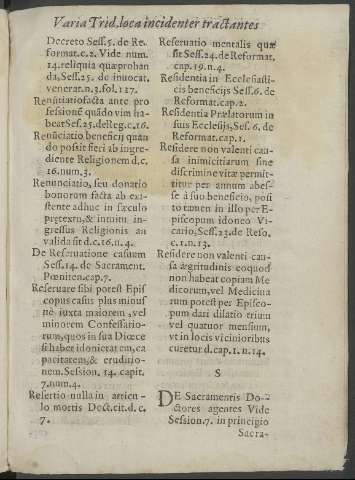 Varia Trid. loca incidenter tractantes
Decreto Sess. 5. de Re.
format. c. 2. Vide num.
14. reliquia quæ proban
da, Sess. 25. de inuocat.
venerat. n. 3. fol. 127.
Renūtiatio facta ante pro
fessionē quādo vim ha-
beat Ses. 25. de Reg. c. 16.
Renūciatio beneficij quan
do possit fieri ab ingre-
diente Religionem d. c.
16. num. 3.
Renunciatio, seu donatio
bonorum facta ab exi-
stente adhuc in sæculo
prætextu, & intuitu in-
gressus Religionis an
valida sit d. c. 16. n. 4.
De Reseruatione casuum
Sess. 14. de Sacrament.
Pœniten. cap. 7.
Reseruare sibi potest Epis
copus casus plus minus
nè iuxta maiorem, vel
minorem Confessario-
rum, quos in sua Diœce
si habet idonietatem, ca
pacitatem, & eruditio-
nem. Session. 14. capit.
7. num. 4.
Resertio nulla in articu-
lo mortis Dect. cit. d. c.
7.
Reseruatio mentalis quæ
sit Sess. 24. de Reformat.
cap. 19. n. 4.
Residentia in Ecclesiasti-
cis beneficijs Sess. 6. de
Reformat. cap. 2.
Residentia Prælatorum in
suis Ecclesijs, Ses. 6. de
Reformat. cap. 1.
Residere non valenti cau-
sa inimicitiarum sine
discrimine vitæ permit-
titur per annum abes-
se à suo beneficio, posi
to tamen in illo per E-
piscopum idoneo Vi-
cario, Sess. 23. de Refo.
c. 1. n. 13.
Residere non valenti cau-
sa ægritudinis eo quod
non habeat copiam Me
dicorum, vel Medicina
rum potest per Episco-
pum dari dilatio trium
vel quatuor mensium,
vt in locis vicinioribus
curetur d. cap. 1. n. 14.
S
DE Sacramentis Do-
ctores agentes Vide
Session. 7. in principio
Sacra-